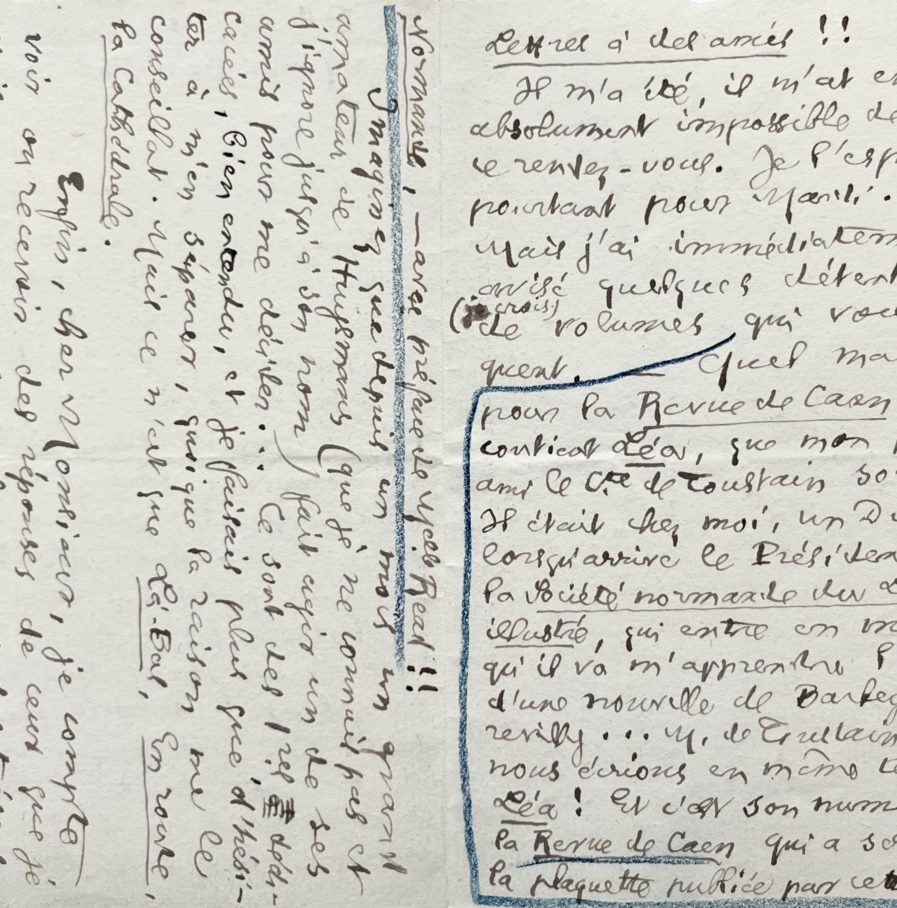 Lettres à des amis !!
Il m'a été, il m'est en
absolument impossible de
ce rendez-vous. Je l'esp
pourtant pour Mardi.
Mais j'ai immédiatem
avisé quelques détent
(je crois)
de volumes qui vou
quent. — Quel ma
pour la Revue de Caen
contient Léa, que mon
ami le Cte de Toustain so
Il était chez moi, un D
lorsqu'arrive le Présiden
la Société normande du L
illustré, qui entre en m
qu'il va m'apprendre l
d'une nouvelle de Barbey
revilly... M. de Toustain
nous écrions en même te
Léa ! Et c'est son num
la Revue de Caen qui a se
la plaquette publiée par cett
Normande, — avec préface de Melle Read !!
Imaginez que depuis un mois un grand
amateur de Huysmans (que je ne connais pas et
j'ignore jusqu'à son nom) fait agir un de ses
amis pour me décider... Ce sont des 1res dédi-
cacées, bien entendu, et je faisais plus que d'hési-
ter à m'en séparer, quoique la raison me le
conseillât. Mais ce n'est que Là-Bas, En route,
La Cathédrale.
Enfin, cher Monsieur, je compte
voir ou recevoir des réponses de ceux que je